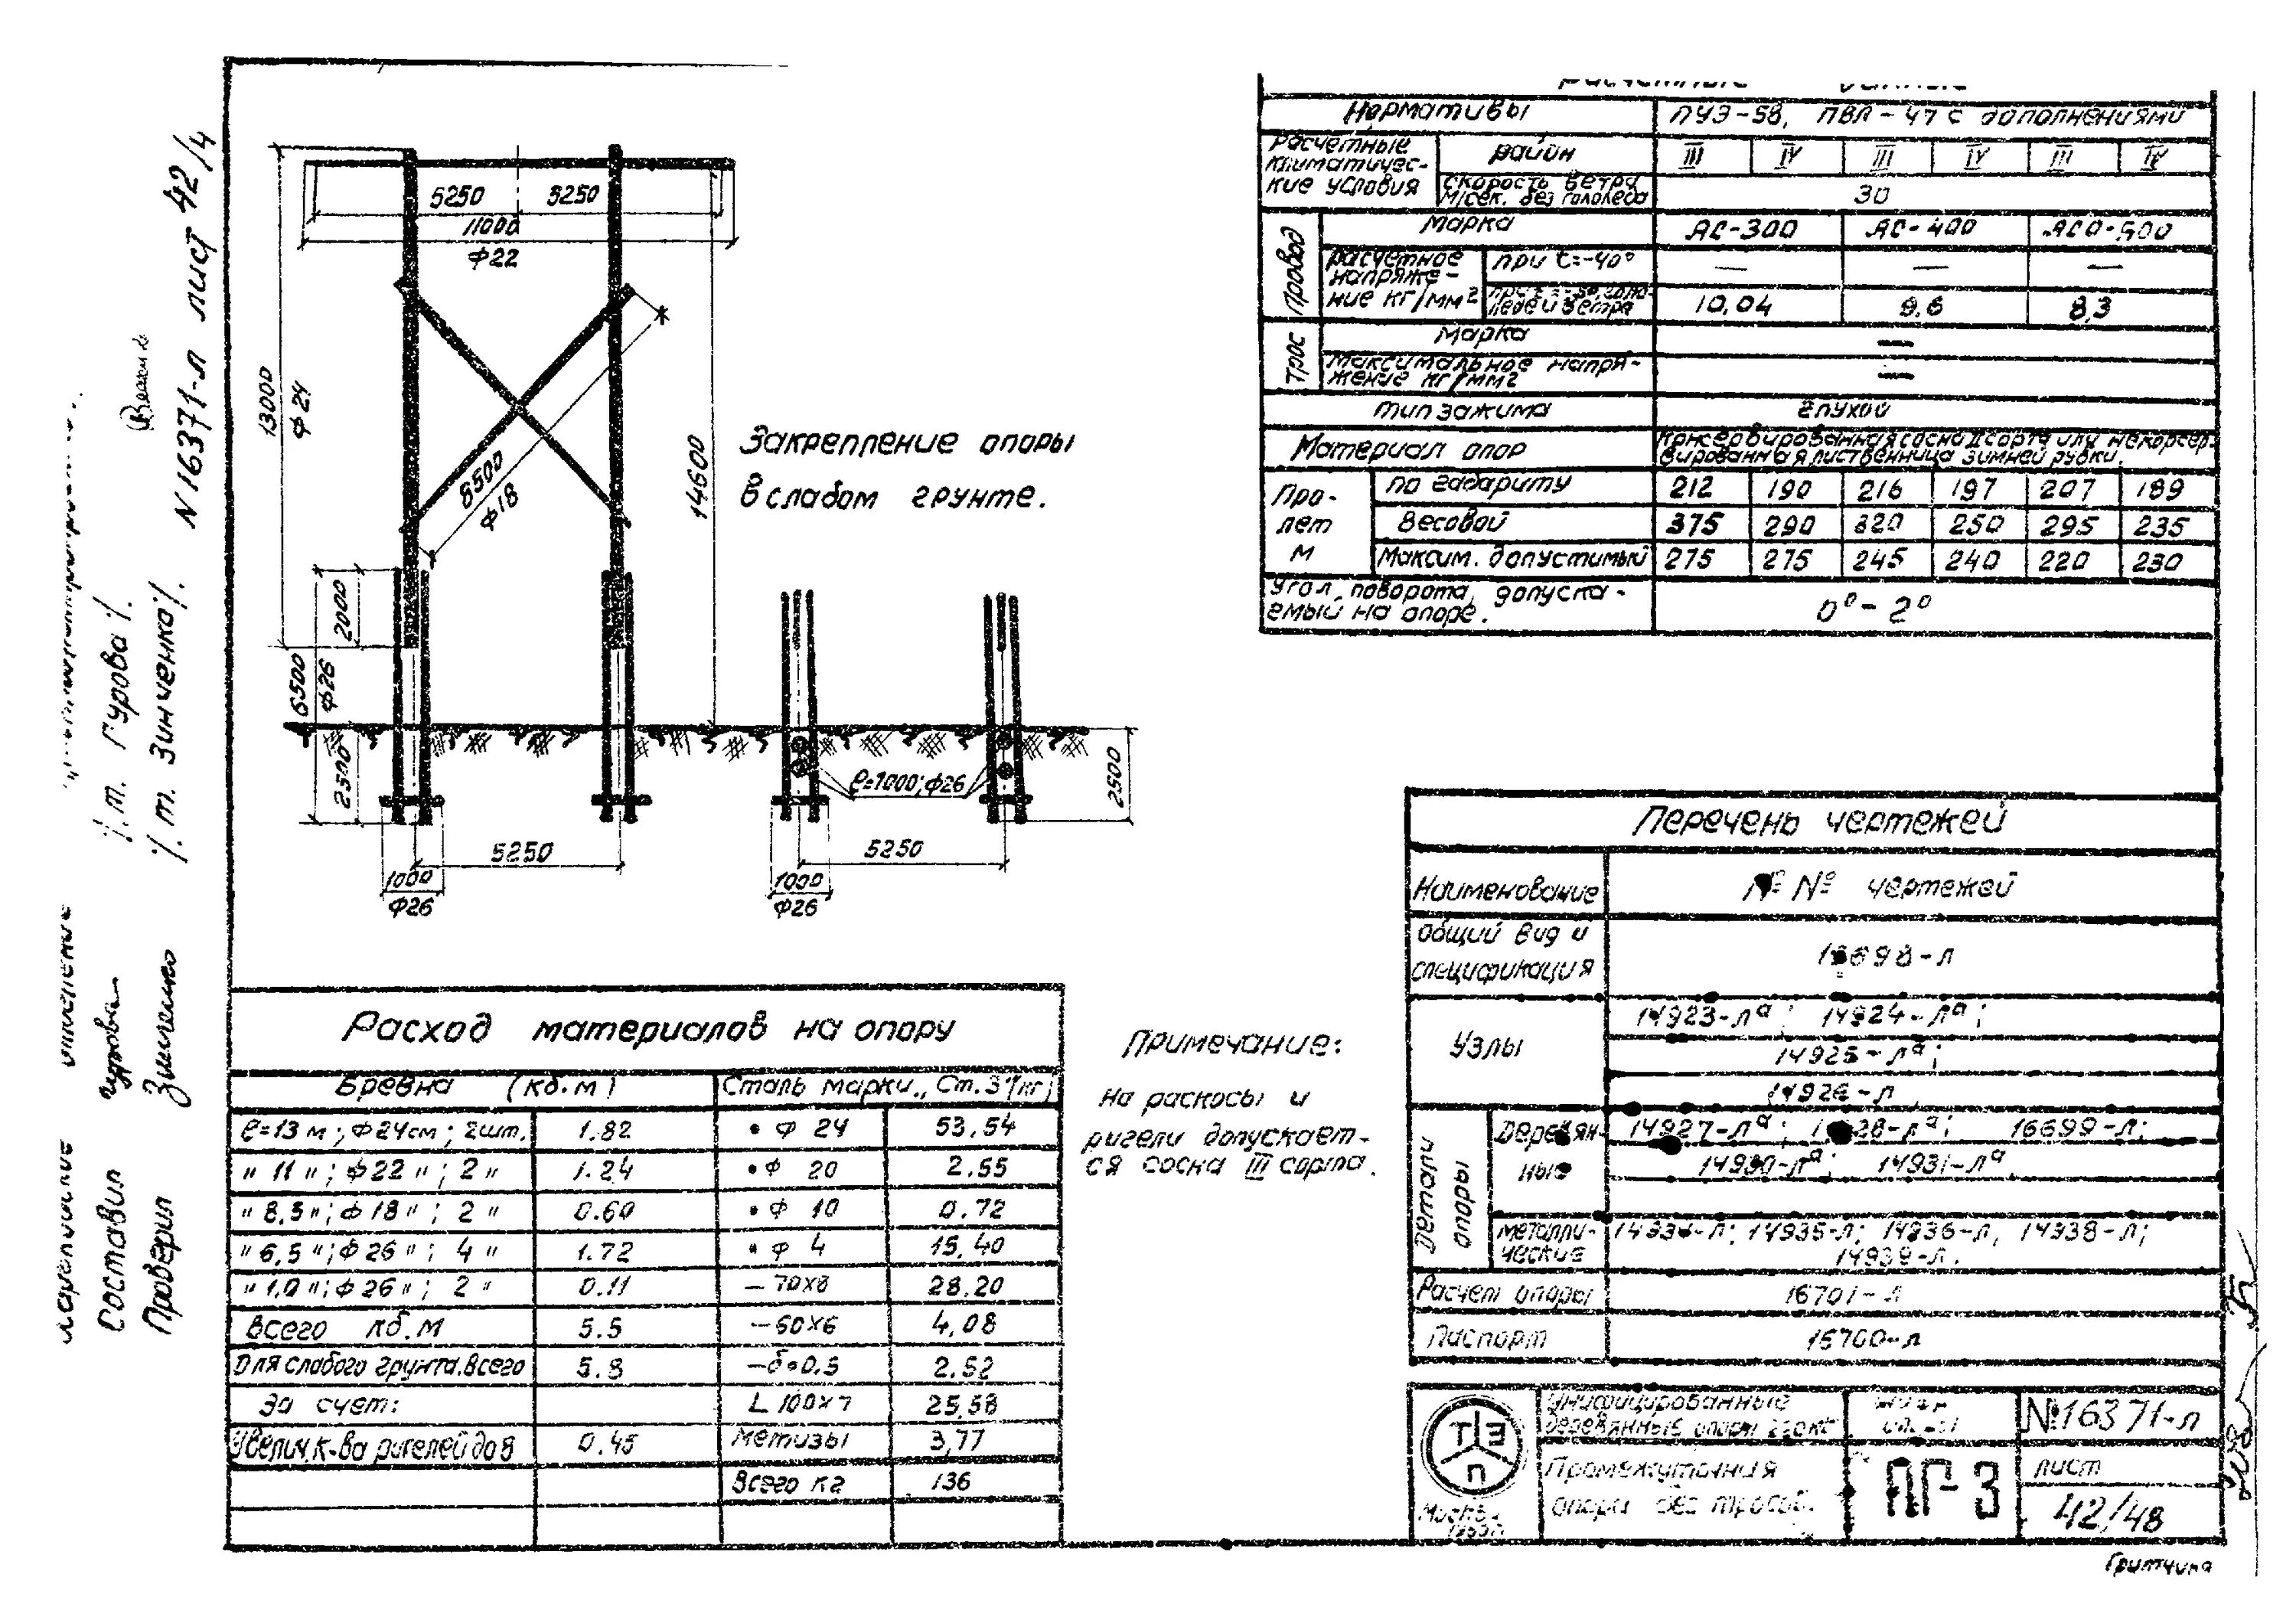 N16371-л лист 42/4
/.т. Гурова/.
/.т. Зинченко/.
Составил
Проверил
5250 5250
11000
ф22
13000
ф24
8500
ф18
14600
2000
6500
ф26
2500
5250
1000
ф26
Закрепление опоры
в слабом грунте.
ℓ=1000; ф26
2500
5250
1000
ф26
Расчетные данные
Нормативы ПУЭ-58, ПВЛ-47 с дополнениями
Расчетные климатичес-кие условия район III IV III IV III IV
скорость ветра м/сек. без гололеда 30
Провод Марка АС-300 АС-400 АСО-500
расчетное напряже-ние кг/мм2 при t=-40° — — —
10,04 9,6 8,3
Трос Марка —
Максимальное напря-жение кг/мм2 —
Тип зажима глухой
Материал опор Консервированная сосна II сорта или неконсер-
вированная лиственница зимней рубки.
Про-лет м по габариту 212 190 216 197 207 189
Весовой 375 290 320 250 295 235
Максим. допустимый 275 275 245 240 220 230
Угол поворота, допуска-
емый на опоре. 0° - 2°
Расход материалов на опору
Бревна (кб.м) Сталь марки „Ст.3" (кг)
ℓ=13 м; ф24см; 2шт. 1.82 • ф 24 53,54
" 11 "; ф22 "; 2 " 1.24 • ф 20 2.55
" 8,5 "; ф 18 "; 2 " 0.60 • ф 10 0.72
" 6,5 "; ф26 "; 4 " 1.72 • ф 4 15,40
" 1,0 "; ф 26 "; 2 " 0.11 — 70х8 28.20
Всего кб.м 5.5 — 60х6 4,08
Для слабого грунта.Всего 5.8 — δ=0.5 2.52
За счет: L 100х7 25,58
Увелич.к-ва ригелей до 8 0.45 метизы 3,77
Всего кг 136
Примечание:
На раскосы и
ригели допускает-
ся сосна III сорта.
Перечень чертежей
Наименование № № чертежей
Общий вид и
спецификация 16698-л
Узлы 14923-лª; 14924-лª;
14925-лª;
14926-л
Детали опоры Деревян-ные 14927-лª; 16699-л;
14930-лª; 14931-лª
металли-ческие 14934-л; 14935-л; 14936-л, 14938-л;
14939-л.
Расчет опоры 16701-л
Паспорт 16700-л
ТЭП
Москва
Унифицированные
деревянные опоры 220 кв
№16371-л
Промежуточная
опора без тросов.
ПГ-3
лист
42/48